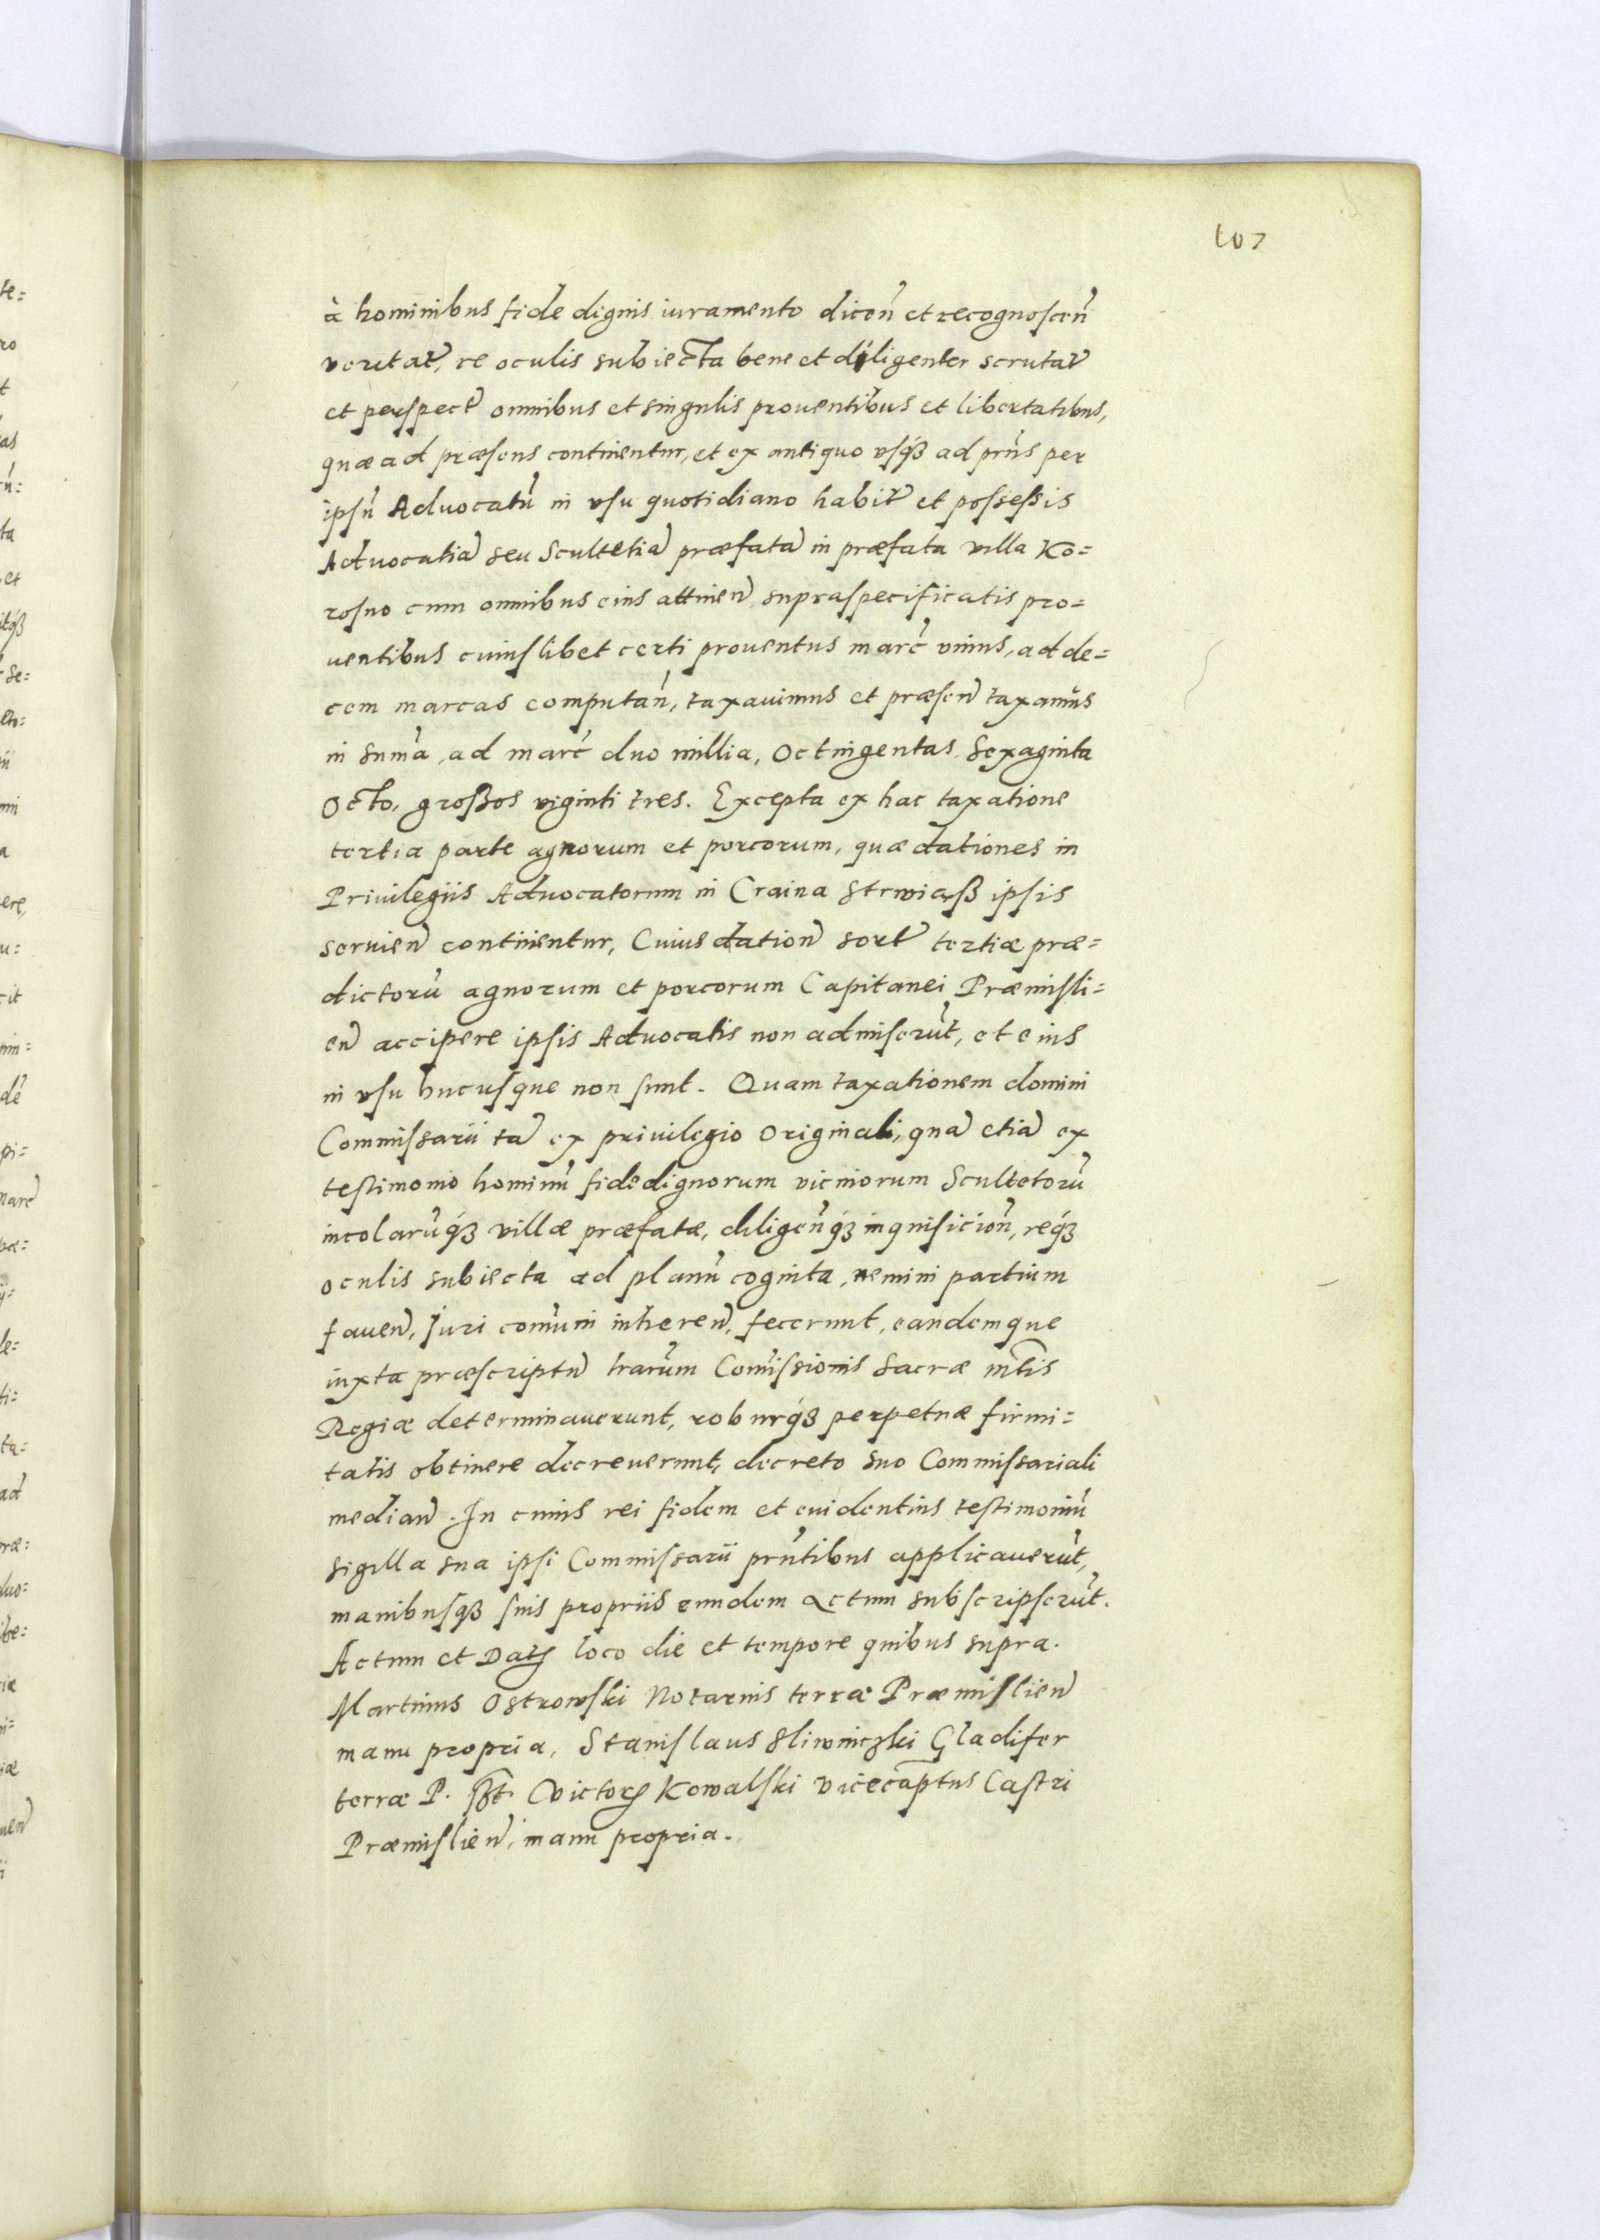 107
à hominibus fide dignis iuramento dicen̄ et recognoscen̄
veritat̄, re oculis subiecta bene et diligenter scrutat̄
et perspect̄ omnibus et singulis prouentibus et libertatibus,
quæ ad præsens continentur, et ex antiquo vsq́ꝫ ad prn̄s per
ipsū Aduocatū in vsu quotidiano habit̄ et possessis
Aduocatiā seu Scultetiā præfatā in præfata villa Ko=
rosno cum omnibus eius attinen̄ supraspecificatis pro=
uentibus cuiuslibet certi prouentus marc̄ vnius, ad de=
cem marcas computan̄, taxauimus et præsen̄ taxamus
in sum̄a, ad marc̄ duo millia, Octingentas Sexaginta
Octo, großos viginti tres. Excepta ex hac taxatione
tertia parte agnorum et porcorum, quæ dationes in
Priuilegiis Aduocatorum in Craina Strwiąß ipsis
seruien̄ continentur, Cuius dation̄ sort̄ tertiæ præ=
dictorū agnorum et porcorum Capitanei Præmisli=
en̄ accipere ipsis Aduocatis non admiserūt, et eius
in vsu hucusque non sunt. Quam taxationem domini
Commissarii tā ex priuilegio Originali, quā etiā ex
testimonio hominū fidedignorum vicniorum Scultetorū
incolarūq́ꝫ villæ præfatæ, diligen̄q́ꝫ inquisicion̄, req́ꝫ
oculis subiecta ad planū cognita, nemini partium
fauen̄, Juri com̄uni inheren̄, fecerunt, eandemque
iuxta præscriptū lrarūm Com̄issionis Sacræ mt̄is
Regiæ determinauerunt, roburq́ꝫ perpetuæ firmi=
tatis obtinere decreuerunt, decreto suo Commissariali
median̄. In cuius rei fidem et euidentius testimoniū
sigilla sua ipsi Commissarii prn̄tibus applicauerūt,
manibusqꝫ suis propriis eundem Actum subscripserūt.
Actum et Datꝫ loco die et tempore quibus supra.
Martinus Ostrowski Notarius terræ Præmislien̄
manu propria, Stanislaus Sliwniczki Gladifer
terræ P. sßt. Victorꝫ Kowalski vicecap̄tus Castri
Præmislien̄, manu propria.